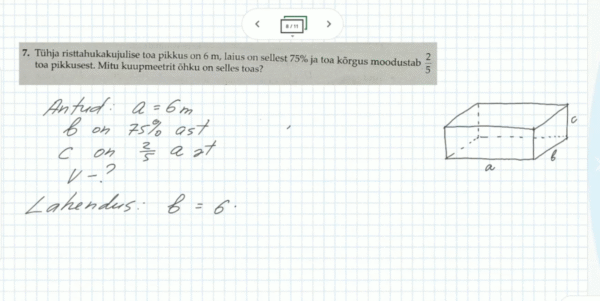 8 / 11
7. Tühja risttahukakujulise toa pikkus on 6 m, laius on sellest 75% ja toa kõrgus moodustab 2/5
toa pikkusest. Mitu kuupmeetrit õhku on selles toas?
Antud: a = 6 m
b on 75% ast
c on 2/5 a st
V - ?
Lahendus: b = 6 ·
c
b
a